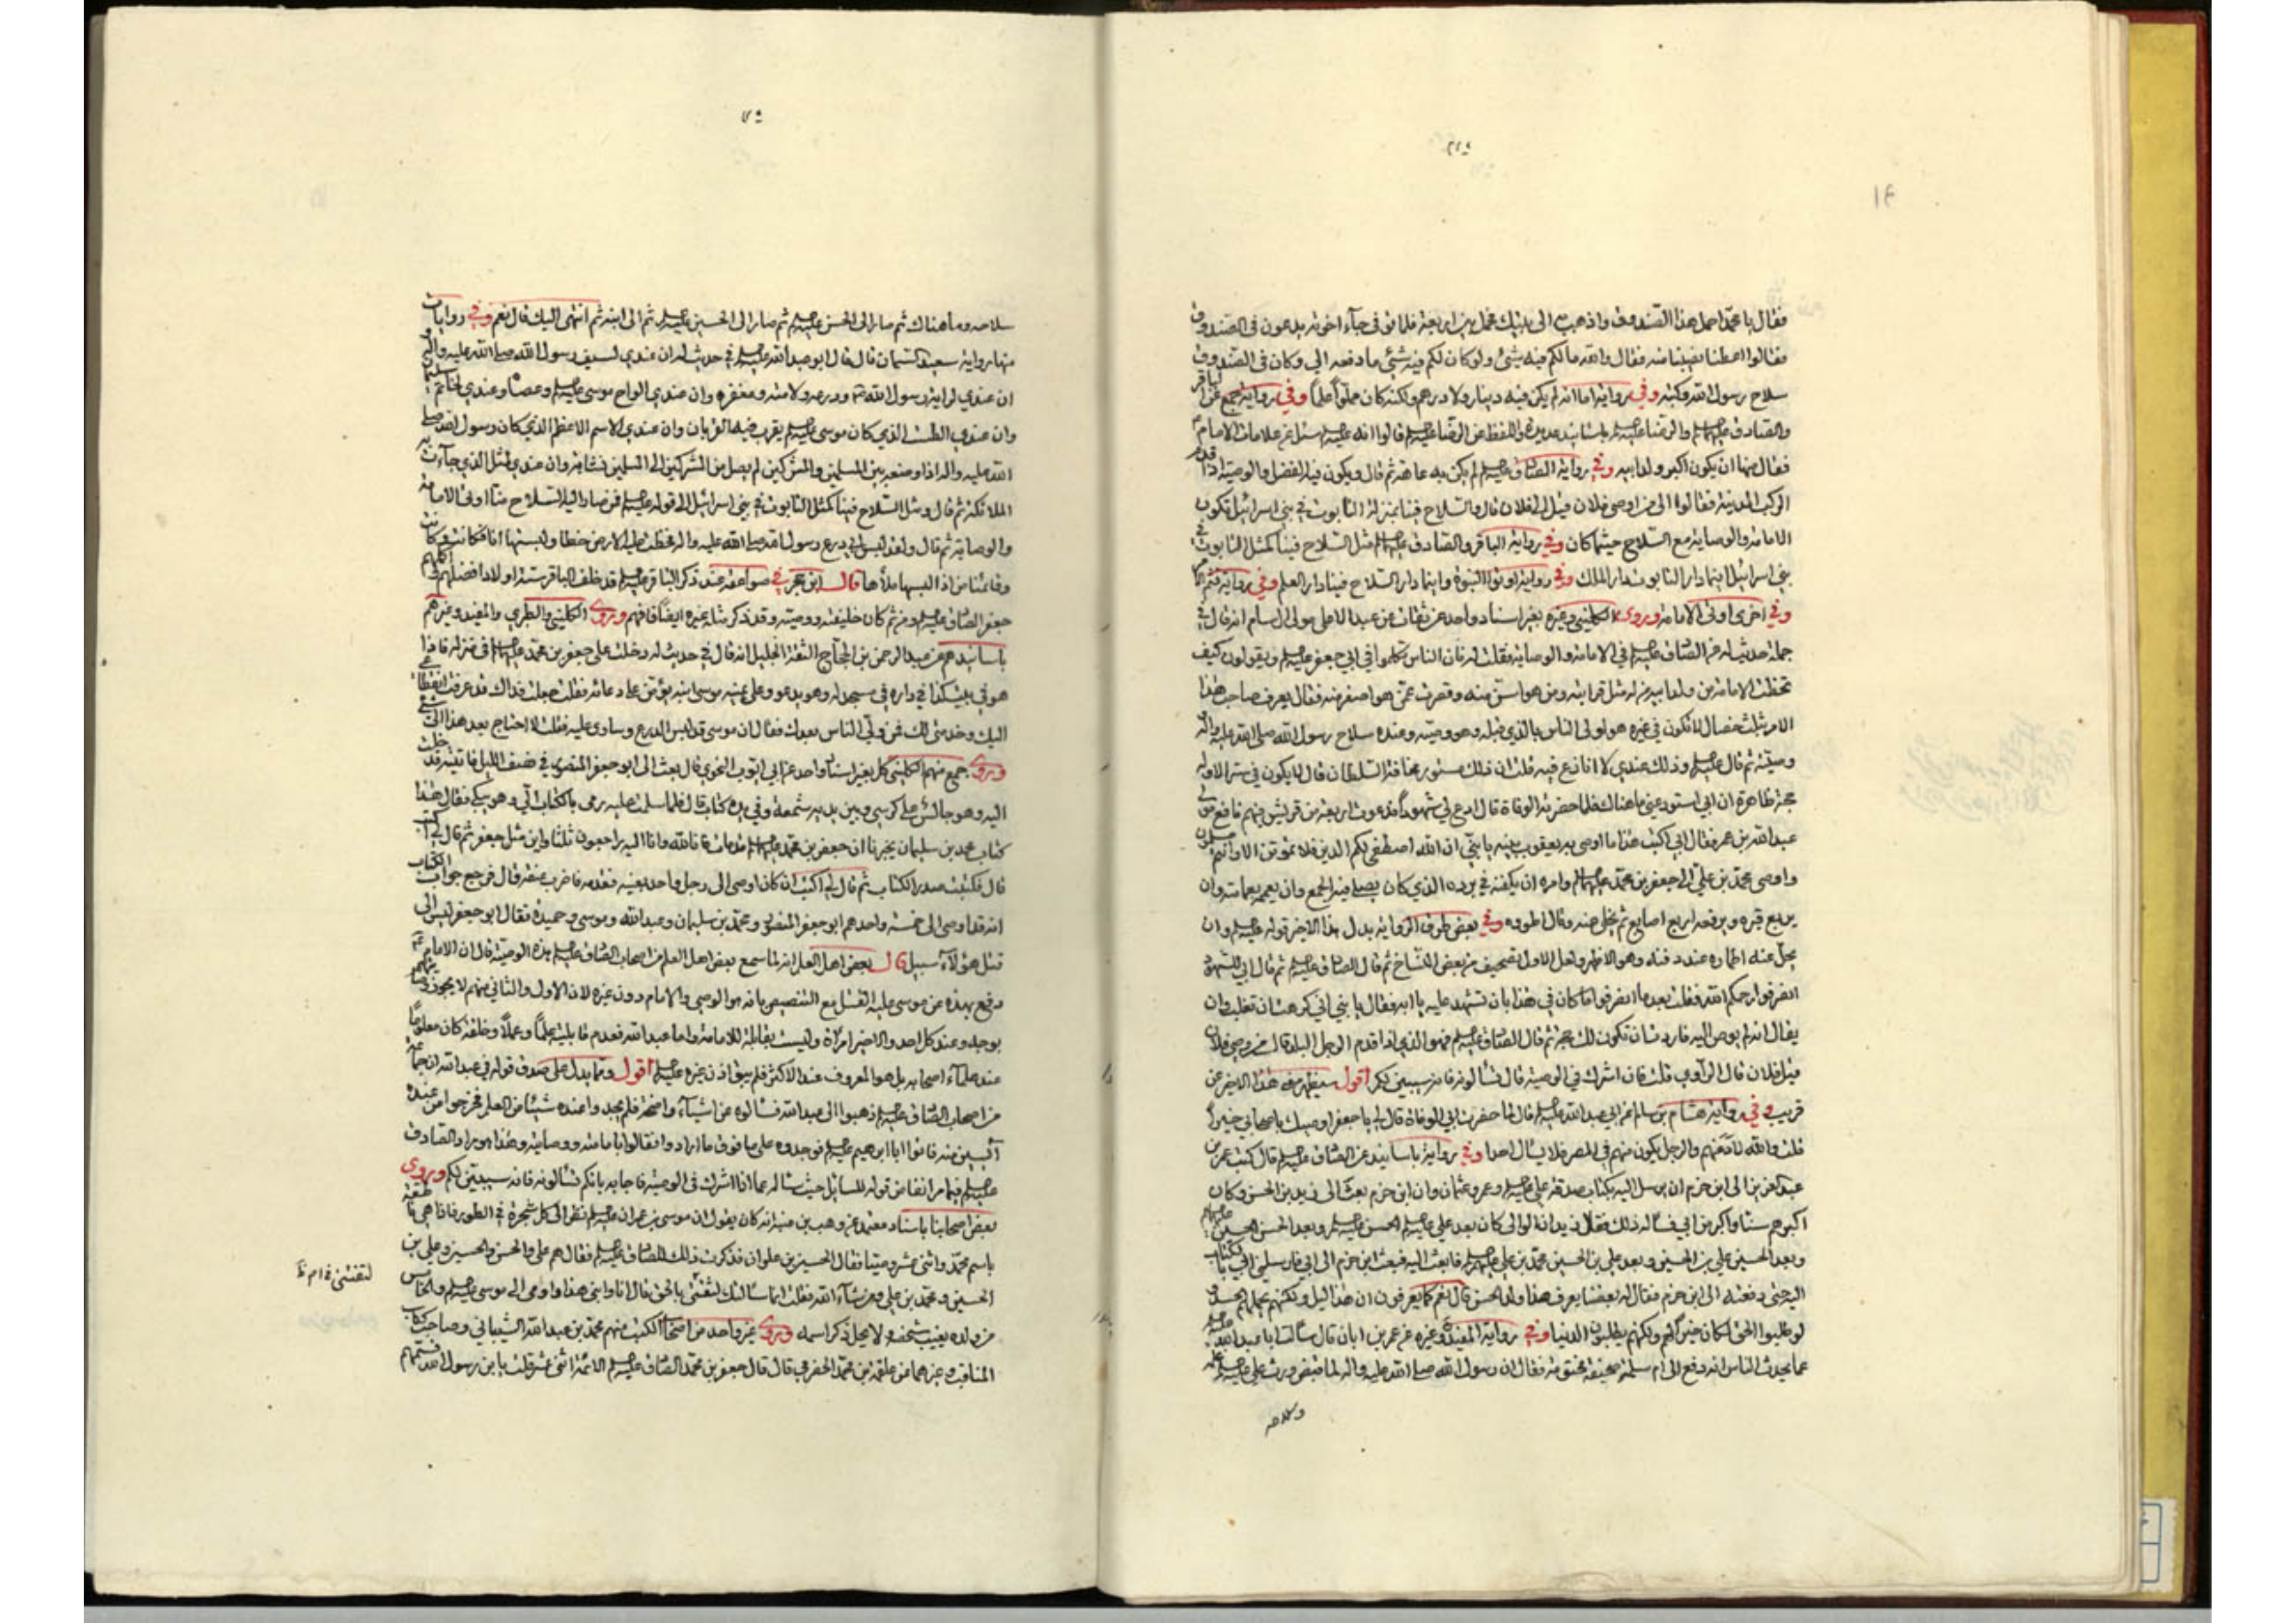 فقال يا محمد احمل هذا الصندوق واذهب به الى بيتك فحمل بين اربعة فلما توفى جاء اخوته يدعون فى الصندوق
فقالوا اعطنا نصيبنا منه فقال والله ما لكم فيه شئ ولو كان لكم فيه شئ ما دفعه الي وكان فى الصندوق
سلاح رسول الله وكتبه وفي رواية اما انه لم يكن فيه دينار ولا درهم ولكنه كان مملوا علما وفي رواية جمع عن الباقر
والصادق والرضا باسانيد عديدة واللفظ عن الرضا قالوا انه سئل عن علامات الامام
فقال منها ان يكون اكبر ولد ابيه وفي رواية الصادق لم يكن به عاهة ثم قال ويكون فيه الفضل والوصية اذا قدم
الركب المدينة فقالوا الى من اوصى فلان قيل الى فلان قال والسلاح فينا بمنزلة التابوت في بني اسرائيل تكون
الامامة والوصاية مع السلاح حيثما كان وفي رواية الباقر والصادق مثل السلاح فينا كمثل التابوت في
بني اسرائيل اينما دار التابوت دار الملك وفي رواية اوتوا النبوة واينما دار السلاح فينا دار العلم وفي رواية
وفي اخرى اوتى الامامة وروى الكليني وغيره بغير اسناد واحد عن ثقات عن عبد الاعلى مولى ال سام انه قال في
جملة حديث له عن الصادق في الامامة والوصاية فقلت له فان الناس تكلموا في ابي جعفر ويقولون كيف
تخطت الامامة من ولد ابيه من له مثل قرابته ومن هو اسن منه وقصرت عمن هو اصغر منه فقال يعرف صاحب هذا
الامر بثلث خصال لا تكون في غيره هو اولى الناس بالذي قبله وهو وصيه وعنده سلاح رسول الله صلى الله عليه واله
ووصيته ثم قال وذلك عندي لا انازع فيه قلت ان ذلك مستور مخافة السلطان قال لا يكون في ستر الا وله
حجة ظاهرة ان ابي استودعني ما هناك فلما حضرته الوفاة قال ادع لي شهودا فدعوت اربعة من قريش فيهم نافع مولى
عبد الله بن عمر فقال لي اكتب هذا ما اوصى به يعقوب بنيه يا بني ان الله اصطفى لكم الدين فلا تموتن الا وانتم مسلمون
واوصى محمد بن علي الى جعفر بن محمد وامره ان يكفنه في برده الذي كان يصلي فيه الجمع وان يعممه بعمامته وان
يربع قبره ويرفعه اربع اصابع ثم يخلي عنه وقال اطووه وفي بعض طرق الرواية بدل هذا الاخير قوله وان
يحل عنه اطماره عند دفنه وهو الاظهر ولعل الاول تصحيف من بعض النساخ ثم قال الصادق ثم قال ابي للشهود
انصرفوا رحمكم الله فقلت بعد ما انصرفوا ما كان في هذا بان تشهد عليه يا ابه فقال يا بني اني كرهت ان تغلب وان
يقال انه لم يوص اليه فاردت ان تكون لك حجة ثم قال الصادق فهو الذي اذا قدم الرجل البلد قال من وصي فلان
قيل فلان قال الراوي قلت فان اشرك في الوصية قال تسألونه فانه سيبين لكم اقول سيظهر هذا الاخير عن
قريب وفي رواية هشام بن سالم عن ابي عبد الله قال لما حضرت ابي الوفاة قال لي يا جعفر اوصيك باصحابي خيرا
قلت والله لادعنهم والرجل يكون منهم في المصر فلا يسال احدا وفي رواية باسانيد عن الصادق قال كتب عمر بن
عبد العزيز الى ابن حزم ان يرسل اليه بكتاب صدقة علي وعمر وعثمان وان ابن حزم بعث الى زيد بن الحسن وكان
اكبرهم سنا فسأله ذلك فقال زيد ان الوالي كان بعد علي الحسن وبعد الحسن الحسين
وبعد الحسين علي بن الحسين وبعد علي بن الحسين محمد بن علي فابعث اليه فبعث ابن حزم الى ابي فارسلني ابي بالكتاب
اليه حتى دفعته الى ابن حزم فقال له بعضنا يعرف هذا ولد الحسن قال نعم كما يعرفون ان هذا ليل ولكنهم يحملهم الحسد ولو
لو طلبوا الحق لكان خيرا لهم ولكنهم يطلبون الدنيا وفي رواية المفيد وغيره عن عمر بن ابان قال سألت ابا عبد الله
عما يحدث الناس انه دفع الى ام سلمة صحيفة مختومة فقال ان رسول الله صلى الله عليه واله لما قبض ورث علي علمه
وسلاحه
سلاحه وما هناك ثم صار الى الحسن ثم صار الى الحسين ثم الى ابنه ثم انتهى اليك قال نعم وفي روايات
منها رواية سعيد السمان قال قال ابو عبد الله في حديث له ان عندي لسيف رسول الله صلى الله عليه واله و
ان عندي لراية رسول الله ودرعه ولامته ومغفره وان عندي الواح موسى وعصاه وعندي لخاتم سليمان
وان عندي الطست الذي كان موسى يقرب فيه القربان وان عندي الاسم الاعظم الذي كان رسول الله صلى
الله عليه واله اذا وضعه بين المسلمين والمشركين لم يصل من المشركين الى المسلمين نشابة وان عندي لمثل الذي جاءت به
الملائكة ثم قال ومثل السلاح فينا كمثل التابوت في بني اسرائيل الى قوله فمن صار اليه السلاح منا اوتى الامامة
والوصاية ثم قال ولقد لبس ابي درع رسول الله صلى الله عليه واله فخطت عليه الارض خطا ولبستها انا فكانت وكانت
وقائمنا من اذا لبسها ملأها قال ابن حجر في صواعقه عند ذكر الباقر قد خلف الباقر ستة اولاد افضلهم واكملهم
جعفر الصادق ومن ثم كان خليفته ووصيه وقد ذكر مثله غيره ايضا فافهم وروى الكليني والطبري والمفيد وغيرهم
باسانيدهم عن عبد الرحمن بن الحجاج الثقة الجليل انه قال في حديث له دخلت على جعفر بن محمد في منزله فاذا
هو في بيت كذا في داره في مسجد له وهو يدعو وعلى يمينه موسى ابنه يؤمن على دعائه فقلت جعلت فداك قد عرفت انقطاعي
اليك وخدمتي لك فمن ولي الناس بعدك فقال ان موسى قد لبس الدرع وساوى عليه فقلت لا احتاج بعد هذا الى شئ
وروى جمع منهم الكليني كل بغير اسناد واحد عن ابي ايوب النحوي قال بعث الي ابو جعفر المنصور في نصف الليل فاتيته فدخلت
اليه وهو جالس على كرسي وبين يديه شمعة وفي يده كتاب قال فلما سلمت عليه رمى بالكتاب الي وهو يبكي فقال هذا
كتاب محمد بن سليمان يخبرنا ان جعفر بن محمد قد مات فانا لله وانا اليه راجعون ثلثا واين مثل جعفر ثم قال لي اكتب
قال فكتبت صدر الكتاب ثم قال لي اكتب ان كان اوصى الى رجل واحد بعينه فقدمه فاضرب عنقه قال فرجع جواب الكتاب
انه قد اوصى الى خمسة واحدهم ابو جعفر المنصور ومحمد بن سليمان وعبد الله وموسى وحميدة فقال ابو جعفر ليس الى
قتل هؤلاء سبيل قال بعض اهل العلم انه لما سمع بعض اهل العلم من اصحاب الصادق بهذه الوصية قال ان الامام
دفع بهذه عن موسى القتل مع التنصيص بانه هو الوصي والامام دون غيره لان الاول والثاني منهم لا يجوز
بوجه وعند كل احد والاخير امرأة وليست بقابلة للامامة واما عبد الله فعدم قابليته علما وعملا وخلقة كان معلوما
عند علماء اصحابه بل هو المعروف عند الاكثر فلم يبق اذن غيره اقول ومما يدل على صدق قوله في عبد الله ان جماعة
من اصحاب الصادق ذهبوا الى عبد الله فسألوه عن اشياء واضحة فلم يجدوا عنده شيئا من العلم فخرجوا من عنده
آيسين منه فاتوا ابا ابراهيم فوجدوه على ما فوق ما ارادوا فقالوا بامامته ووصايته وهذا هو مراد الصادق
فيما مر انفا من قوله للسائل حيث سأله عما اذا اشرك فى الوصية فاجابه بانكم تسألونه فانه سيبين لكم وروى
بعض اصحابنا باسناد معتمد عن وهب بن منبه انه كان يقول ان موسى بن عمران نظر الى كل شجرة في الطور فاذا هي ناطقة
باسم محمد واثنى عشر وصيا فقال الحسين بن علوان فذكرت ذلك للصادق فقال هم علي والحسن والحسين وعلي بن
الحسين ومحمد بن علي ومن شاء الله فقلت انما سألتك لتفتني بالحق فقال انا وابني هذا واومى الى موسى والخامس
من ولده يغيب شخصه ولا يحل ذكر اسمه وروى غير واحد من اصحاب الكتب منهم محمد بن عبد الله الشيباني وصاحب كتاب
المناقب وغيرهما عن علقمة بن محمد الحضرمي قال قال جعفر بن محمد الصادق الائمة اثنى عشر قلت يا بن رسول الله فسمهم